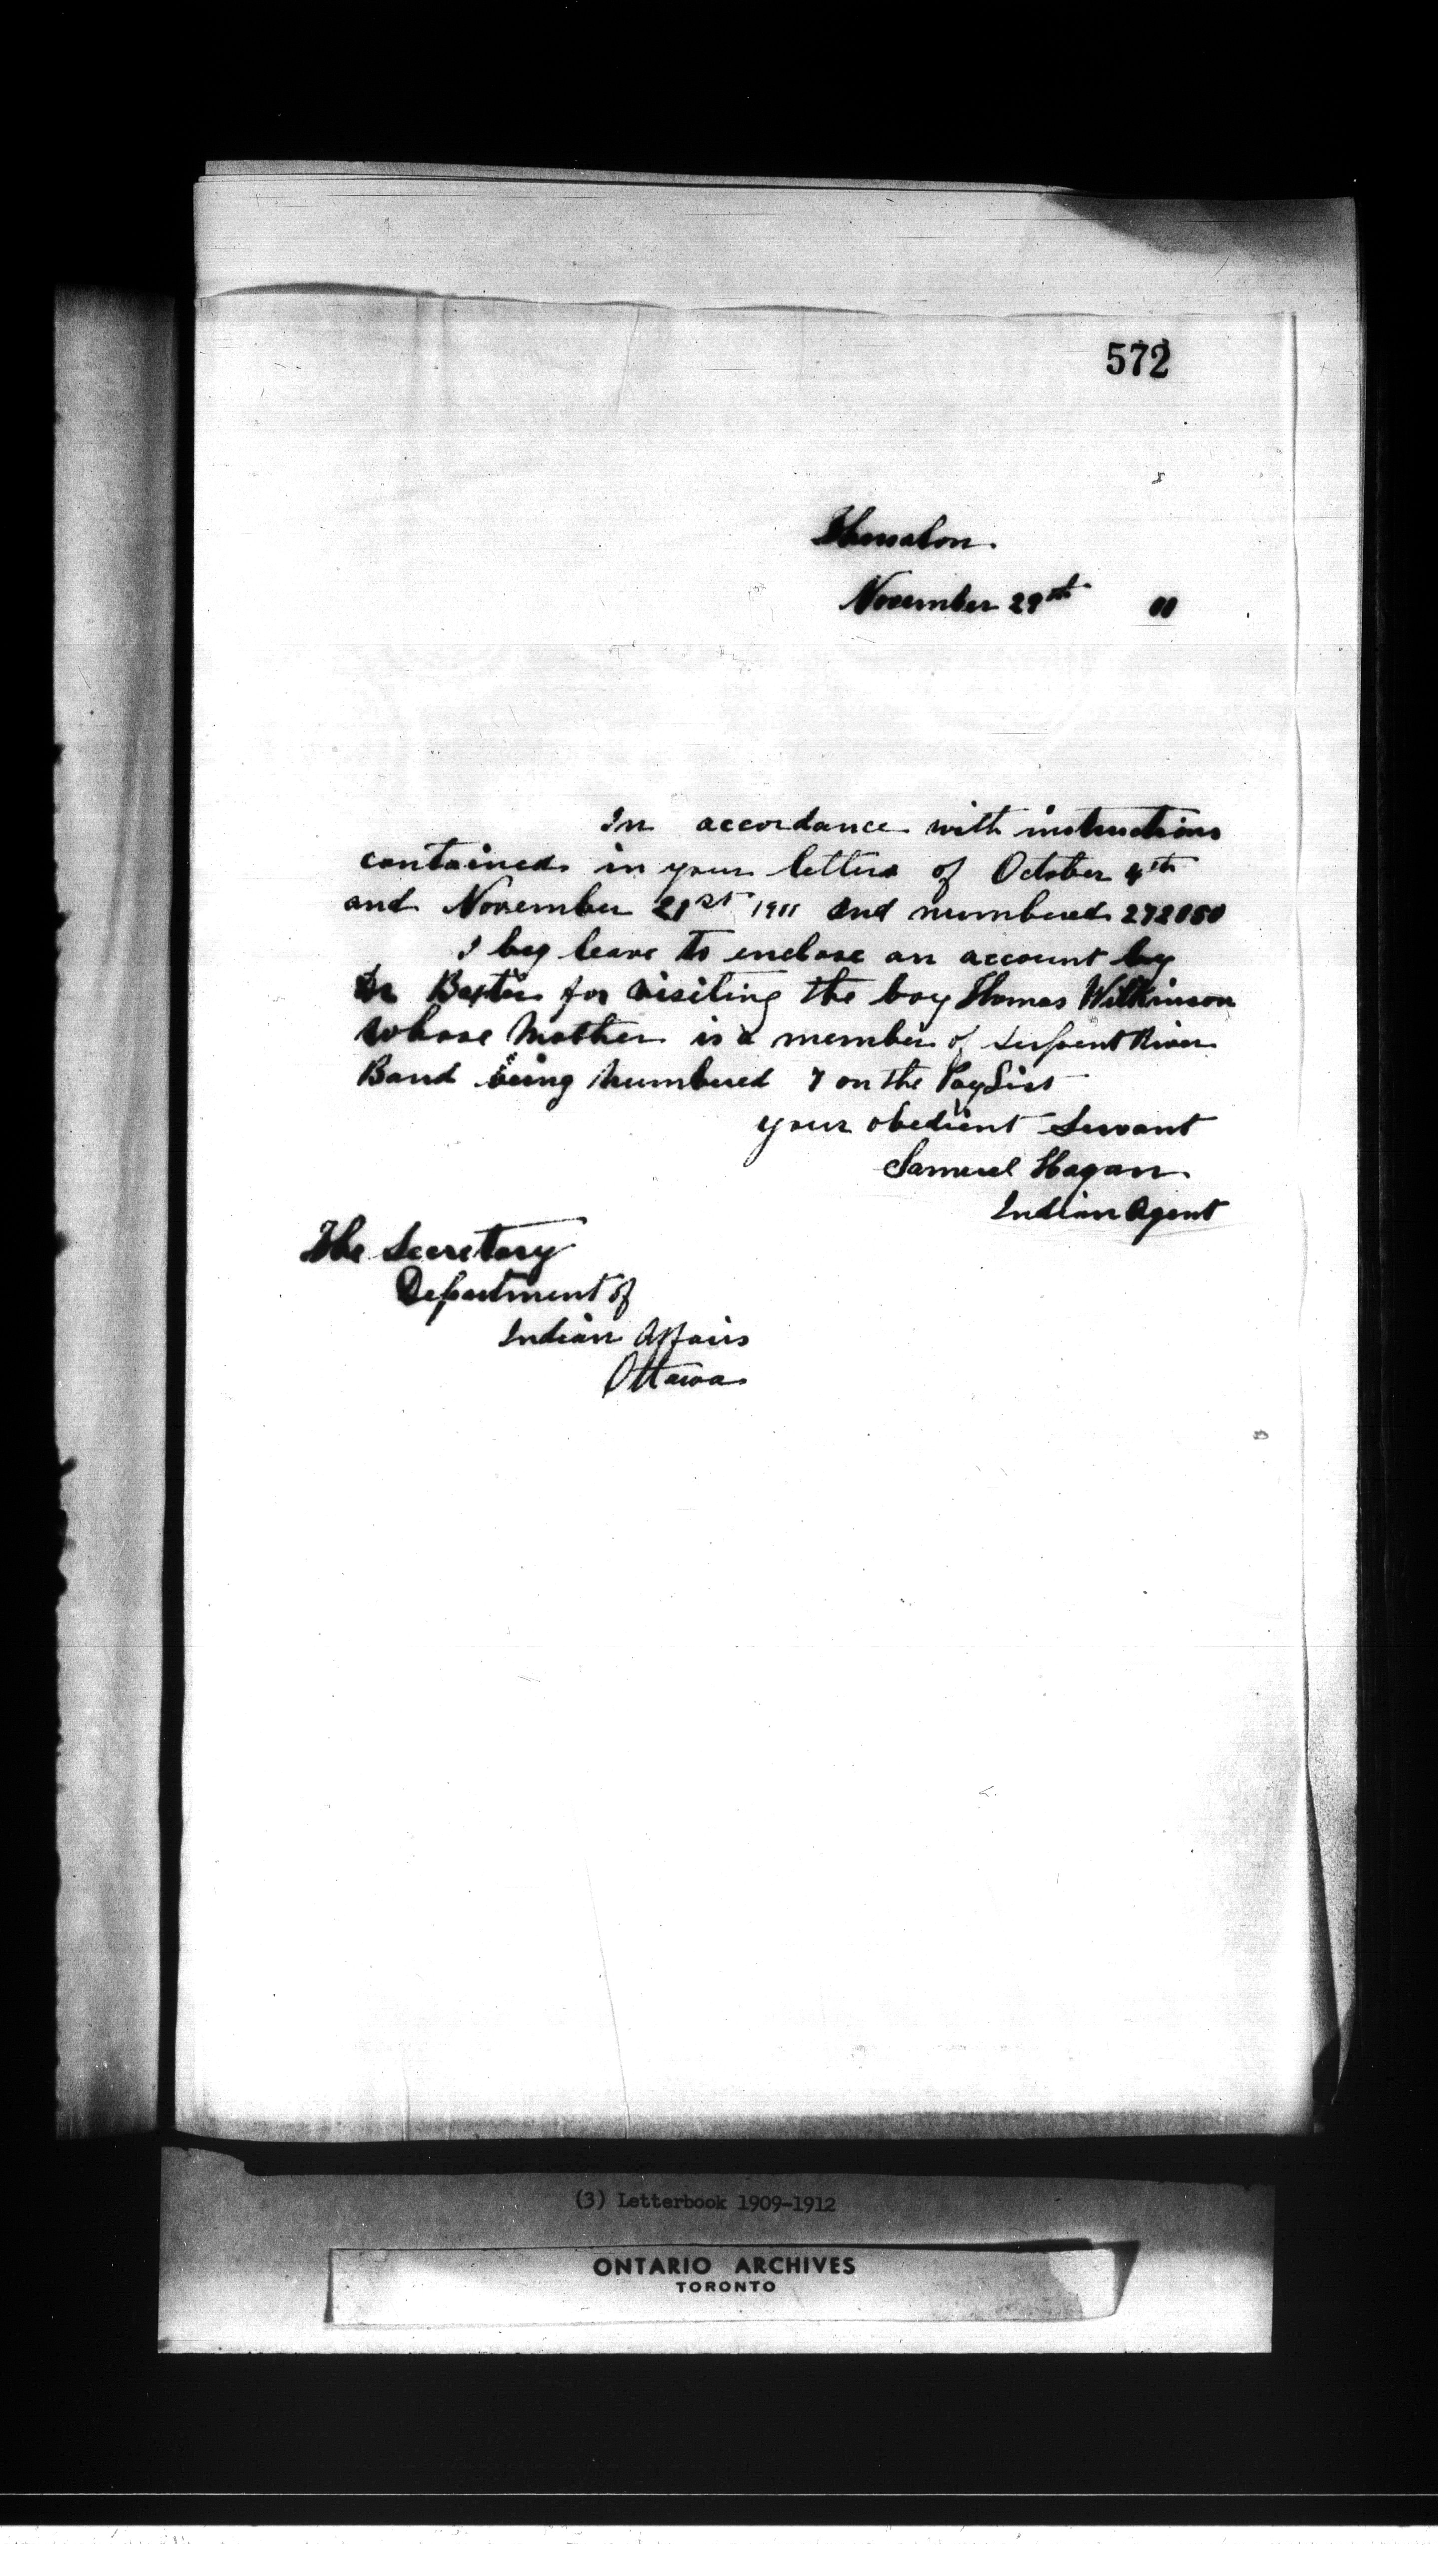 572
Thessalon.
November 29th 11
In accordance with instructions
contained in your letters of October 4th
and November 21st 1911 and numbered 272050
I beg leave to enclose an account by
Dr Baxter for visiting the boy Thomas Wilkinson
whose Mother is a member of Serpent River
Band being numbered 7 on the PayList
your obedient Servant
Samuel Hagan
Indian Agent
The Secretary
Department of
Indian Affairs
Ottawa
(3) Letterbook 1909-1912
ONTARIO ARCHIVES
TORONTO